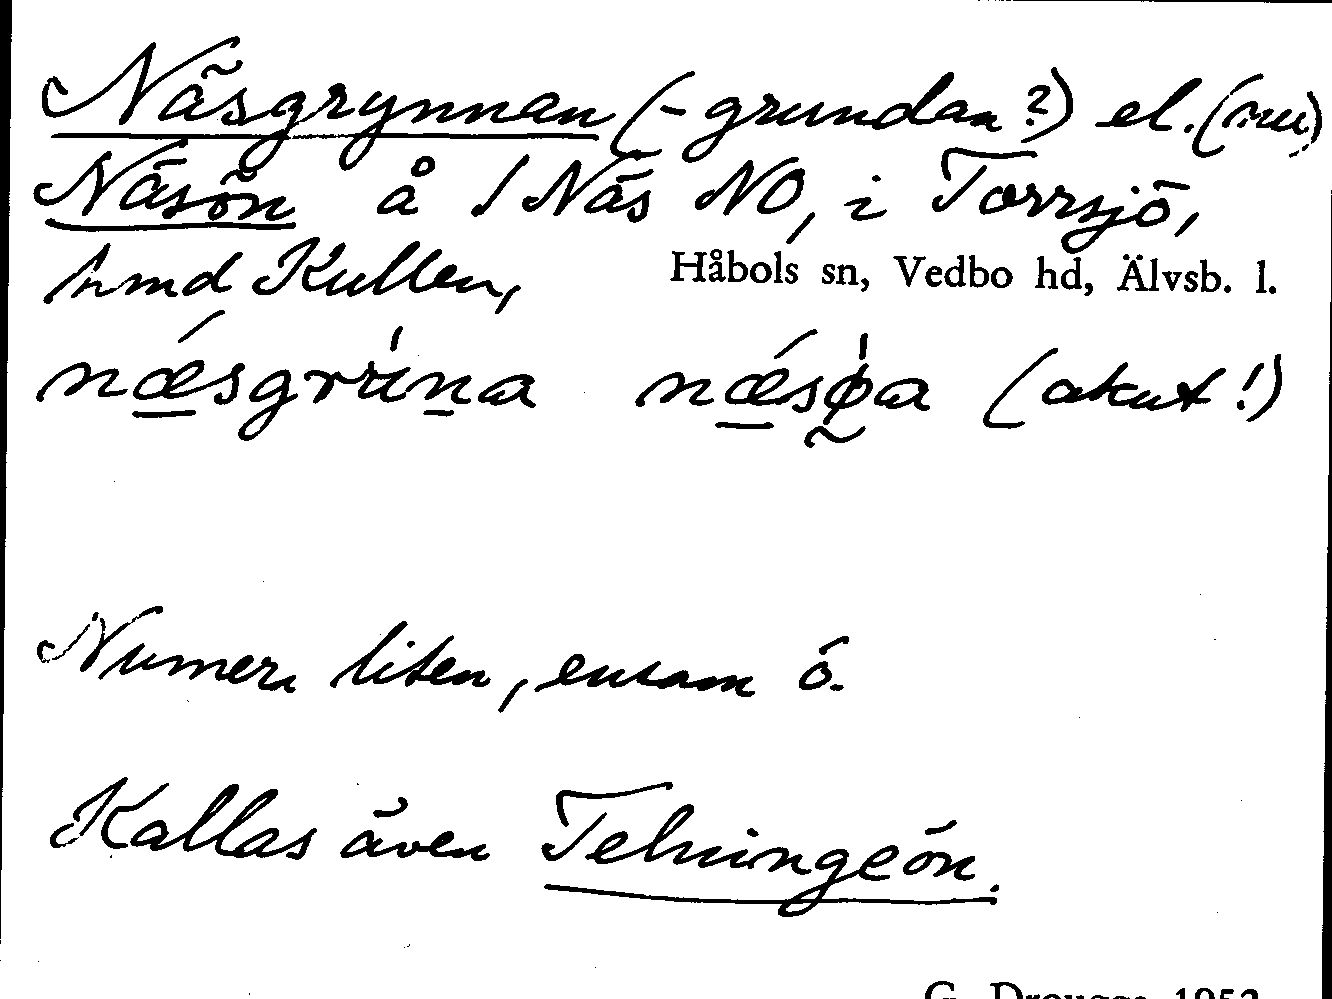 Näsgrynnan (-grundan?) el. (nu)
Näsön å 1 Näs NO, i Torrsjö,
hmd Kullen, Håbols sn, Vedbo hd, Älvsb. l.
næ̀sgrùna nǽsø̀a (akut!)
Numera liten, ensam ö.
Kallas även Telningeön.